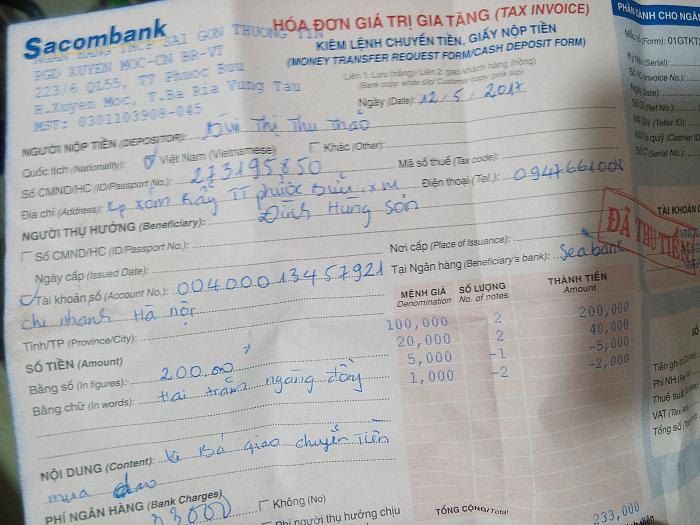 Sacombank
NGAN HANG TMCP SAI GON THUONG TIN
PGD XUYEN MOC-CN BR-VT
223/6 QL55, TT Phuoc Buu
H.Xuyen Moc, T.Ba Ria Vung Tau
MST: 0301103908-045
HÓA ĐƠN GIÁ TRỊ GIA TĂNG (TAX INVOICE)
KIÊM LỆNH CHUYỂN TIỀN, GIẤY NỘP TIỀN
(MONEY TRANSFER REQUEST FORM/CASH DEPOSIT FORM)
Liên 1: Lưu (trắng)/ Liên 2: giao khách hàng (hồng)
(Bank copy: white slip/ Customer copy: pink slip)
Ngày (Date): 12/5/2017
NGƯỜI NỘP TIỀN (DEPOSITOR): Bùi Thị Thu Thảo
Quốc tịch (Nationality): Việt Nam (Vietnamese) Khác (Other):
Số CMND/HC (ID/Passport No.): 273195850 Mã số thuế (Tax code):
Địa chỉ (Address): Kp xóm Rẫy TT phước Bửu, xm Điện thoại (Tel.): 0947661008
NGƯỜI THỤ HƯỞNG (Beneficiary): Đinh Hùng Sơn
Số CMND/HC (ID/Passport No.):
Ngày cấp (Issued Date): Nơi cấp (Place of Issuance):
Tài khoản số (Account No.): 00400013457921 Tại Ngân hàng (Beneficiary's bank): Seabank
chi nhánh Hà nội
Tỉnh/TP (Province/City):
SỐ TIỀN (Amount)
Bằng số (In figures): 200.000
Bằng chữ (In words): Hai trăm ngàng đồng
NỘI DUNG (Content): chuyển Tiền
mua dao
PHÍ NGÂN HÀNG (Bank Charges)
33000
Không (No)
Phí người thụ hưởng chịu
MỆNH GIÁ SỐ LƯỢNG THÀNH TIỀN
Denomination No. of notes Amount
100,000 2 200,000
20,000 2 40,000
5,000 -1 -5,000
1,000 -2 -2,000
TỔNG CỘNG/Total
233,000
PHẦN DÀNH CHO NGÂN
(Form): 01GTKT
(Serial):
(Invoice No.):
(Date):
(Ref No.)
(Teller ID):
quỹ (Cashier ID
(Serial No.):
TÀI KHOẢN
ĐÃ THU TIỀN
Tiền ghi
Phí NH
Thuế suất
VAT (Tax
Tổng số